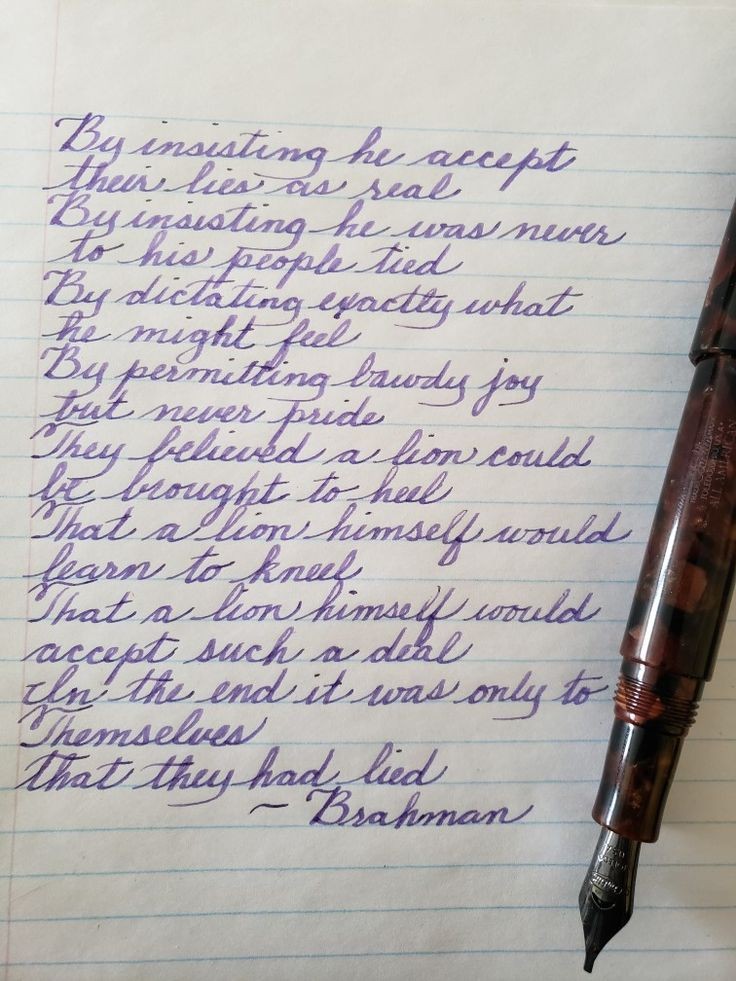 By insisting he accept
their lies as real
By insisting he was never
to his people tied
By dictating exactly what
he might feel
By permitting bawdy joy
but never pride
They believed a lion could
be brought to heel
That a lion himself would
learn to kneel
That a lion himself would
accept such a deal
In the end it was only to
Themselves
that they had lied
~ Brahman
ALL AMERICAN